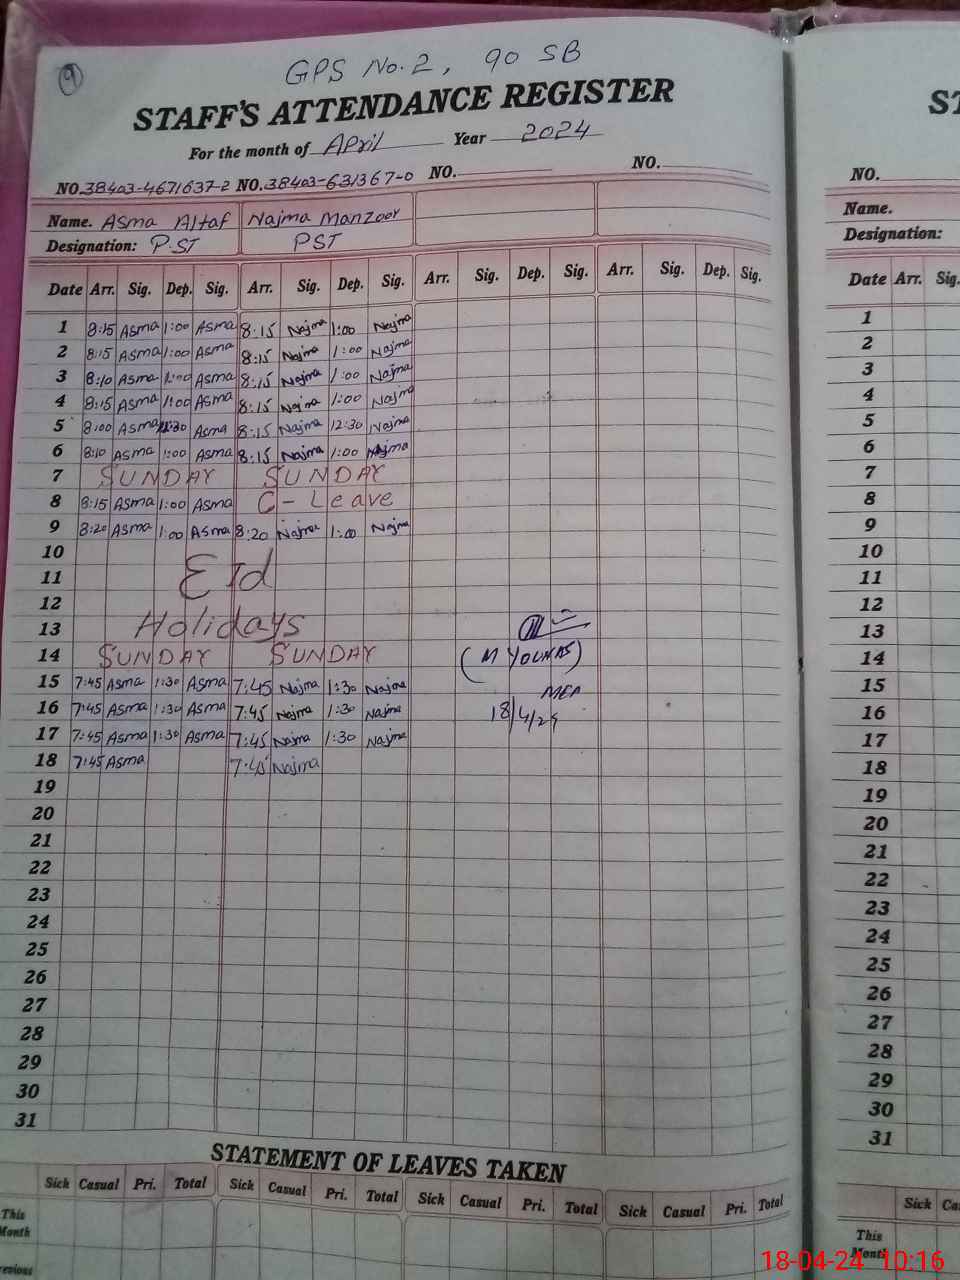 9
GPS No. 2, 90 SB
STAFF'S ATTENDANCE REGISTER
For the month of April Year 2024
NO. 38403-4671637-2 NO. 38403-631367-0 NO. NO.
Name. Asma Altaf Najma Manzoor
Designation: P.ST PST
Date Arr. Sig. Dep. Sig. Arr. Sig. Dep. Sig. Arr. Sig. Dep. Sig. Arr. Sig. Dep. Sig.
1 8:15 Asma 1:00 Asma 8:15 Najma 1:00 Najma
2 8:15 Asma 1:00 Asma 8:15 Najma 1:00 Najma
3 8:10 Asma 1:00 Asma 8:15 Najma 1:00 Najma
4 8:15 Asma 1:00 Asma 8:15 Najma 1:00 Najma
5 8:00 Asma 12:30 Asma 8:15 Najma 12:30 Najma
6 8:10 Asma 1:00 Asma 8:15 Najma 1:00 Najma
7 SUNDAY SUNDAY
8 8:15 Asma 1:00 Asma C-Leave
9 8:20 Asma 1:00 Asma 8:20 Najma 1:00 Najma
10
11 Eid
12
13 Holidays
14 SUNDAY SUNDAY (M YOUNAS)
15 7:45 Asma 1:30 Asma 7:45 Najma 1:30 Najma
16 7:45 Asma 1:30 Asma 7:45 Najma 1:30 Najma 18/4/24
17 7:45 Asma 1:30 Asma 7:45 Najma 1:30 Najma
18 7:45 Asma 7:45 Najma
19
20
21
22
23
24
25
26
27
28
29
30
31
STATEMENT OF LEAVES TAKEN
Sick Casual Pri. Total Sick Casual Pri. Total Sick Casual Pri. Total Sick Casual Pri. Total
This
Month
ST
NO.
Name.
Designation:
Date Arr. Sig.
1
2
3
4
5
6
7
8
9
10
11
12
13
14
15
16
17
18
19
20
21
22
23
24
25
26
27
28
29
30
31
Sick Ca
This
Month
18-04-24 10:16